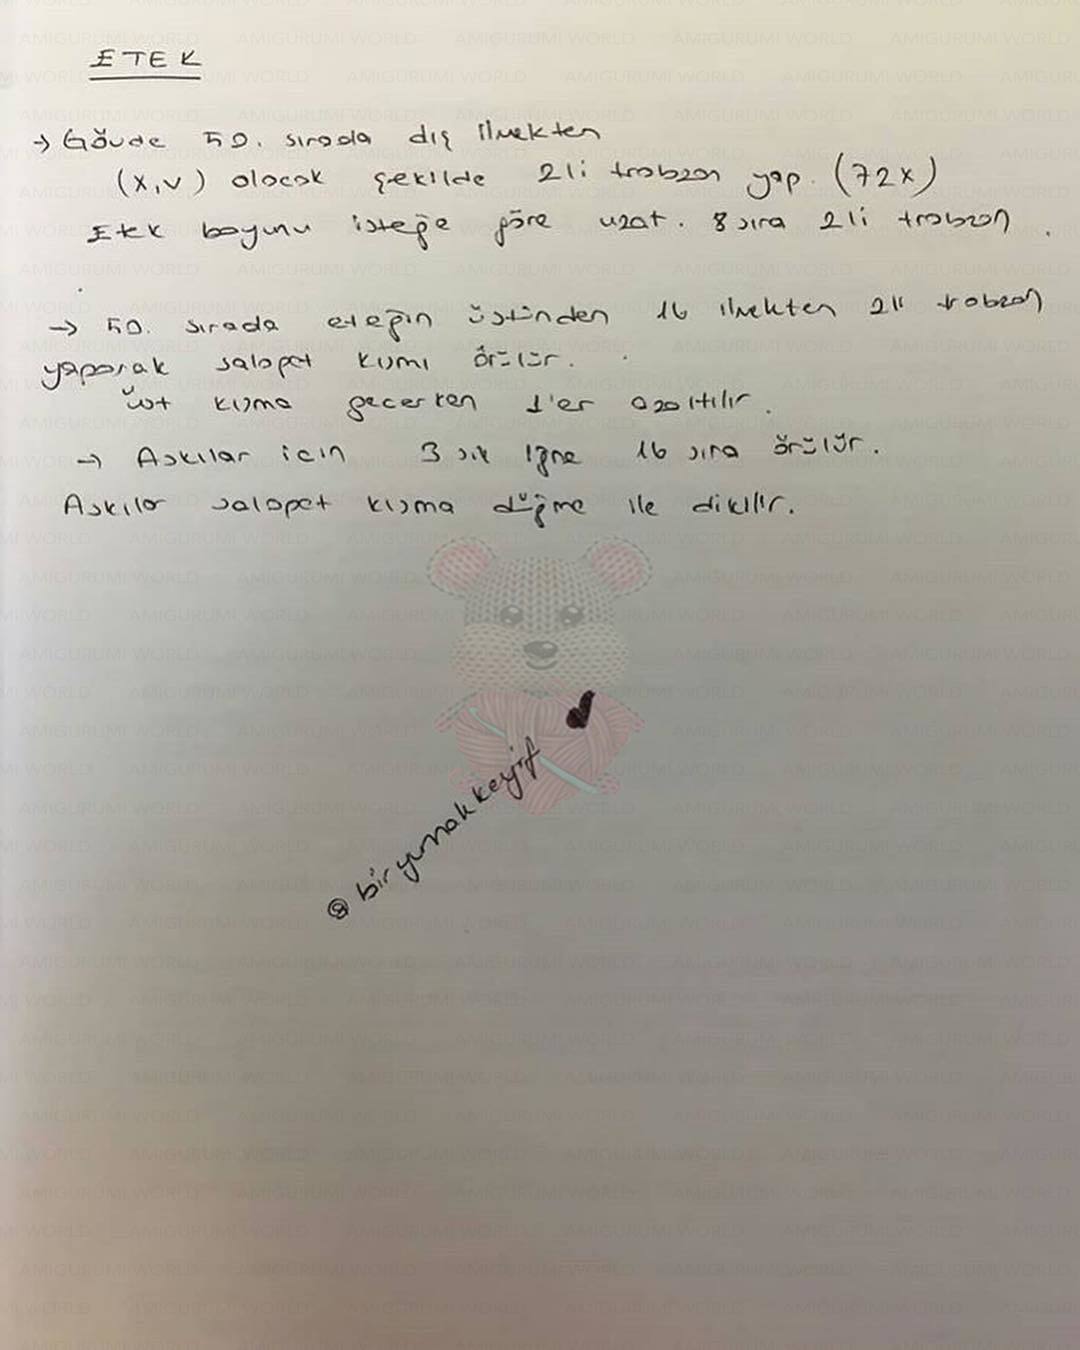 ETEK
→ Gövde 50. sırada dış ilmekten
(x,v) olacak şekilde 2li trabzan yap. (72x)
Etek boyunu isteğe göre uzat. 8 sıra 2li trabzan.
→ 50. sırada eteğin üstünden 16 ilmekten 2li trabzan
yaparak salopet kısmı örülür.
Üst kısma geçerken 1'er azaltılır.
→ Askılar için 3 sık iğne 16 sıra örülür.
Askılar salopet kısma düğme ile dikilir.
@biryumakkeyif
AMIGURUMI WORLD